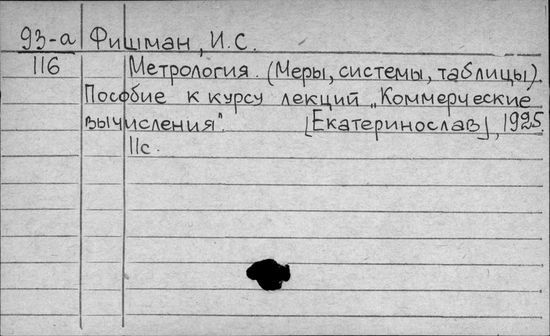 93-а Фишман, И.С.
116 Метрология. (Меры, системы, таблицы).
Пособие к курсу лекций „Коммерческие
вычисления". [Екатеринослав], 1925.
11с.